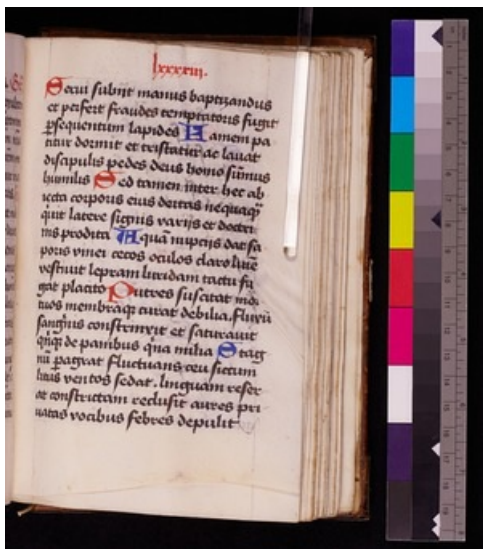 lxxxxiii.
Serui subiit manus baptizandus
et perfert fraudes temptatoris fugit
psequentum lapides Famem pa
titur dormit et tristatur ac lauat
discipulis pedes deus homo sumus
humilis Sed tamen inter hec ab
iecta corporis eius deitas nequaq
quit latere signis varijs et doctri
nis prodita Aquā nupcijs dat sa
poris vinei cecos oculos claro luīe
vestiuit lepram luridam tactu fu
gat placito Putres suscitat mor
tuos membraq curat debilia. Fluxū
sanguis constrinxit et saturauit
qnq de panibus qna milia Stag
nū pagrat fluctuans ceu siccum
litus ventos sedat. linguam reser
at constrictam reclusit aures pri
uatas vocibus febres depulit